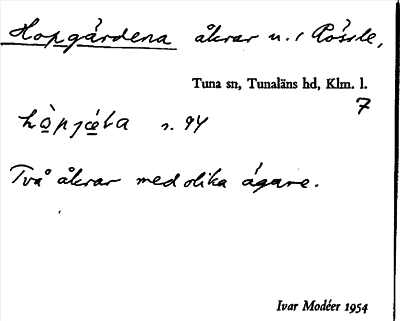 Hopgårdena åkrar u. Rössle,
Tuna sn, Tunaläns hd, Klm. l.
7
s. 94
Två åkrar med olika ägare.
Ivar Modéer 1954